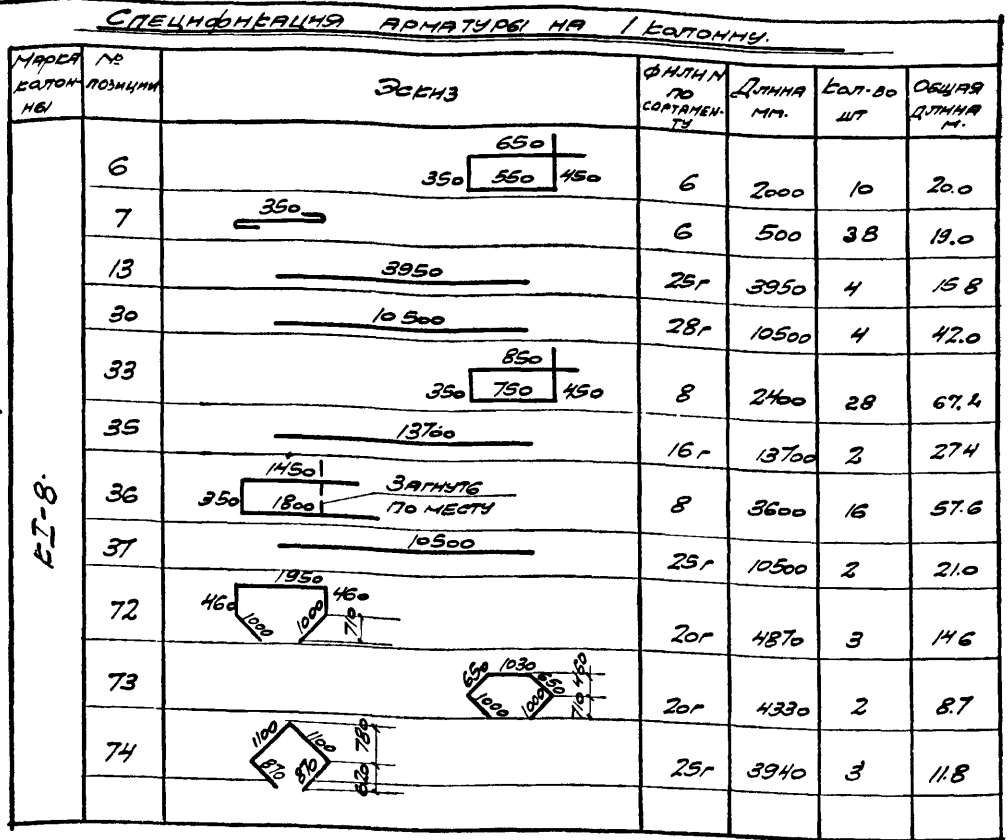 Спецификация арматуры на 1 колонну.
Марка колон-ны № позиции Эскиз Ф ИЛИ № по сортамен-ту Длина мм. Кол-во шт Общая длина м.
КI-8.
6 650 350 550 450 6 2000 10 20.0
7 350 6 500 38 19.0
13 3950 25г 3950 4 15 8
30 10 500 28г 10500 4 42.0
33 850 350 750 450 8 2400 28 67.2
35 13700 16г 13700 2 27 4
36 1450 350 1800 Загнуть по месту 8 3600 16 57.6
37 10500 25г 10500 2 21.0
72 1950 460 460 1000 1000 710 20г 4870 3 14 6
73 650 1030 650 460 1000 1000 710 20г 4330 2 8.7
74 1100 1100 780 870 870 620 25г 3940 3 11.8